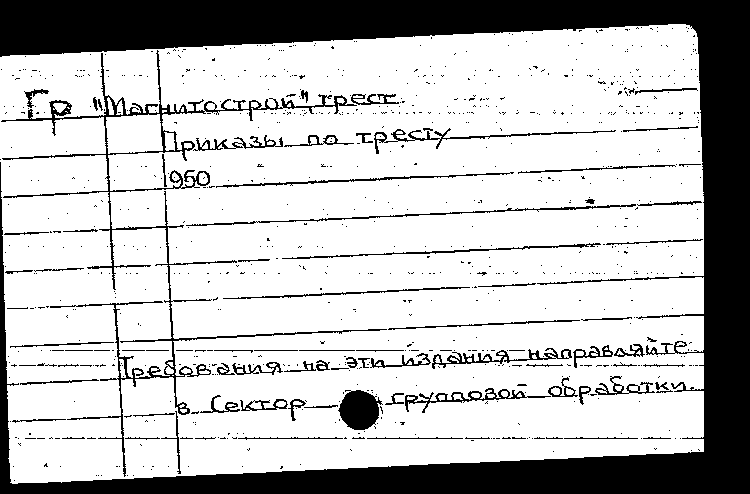 Гр "Магнитострой", трест
Приказы по тресту
1950
Требования на эти издания направляйте
в Сектор групповой обработки.